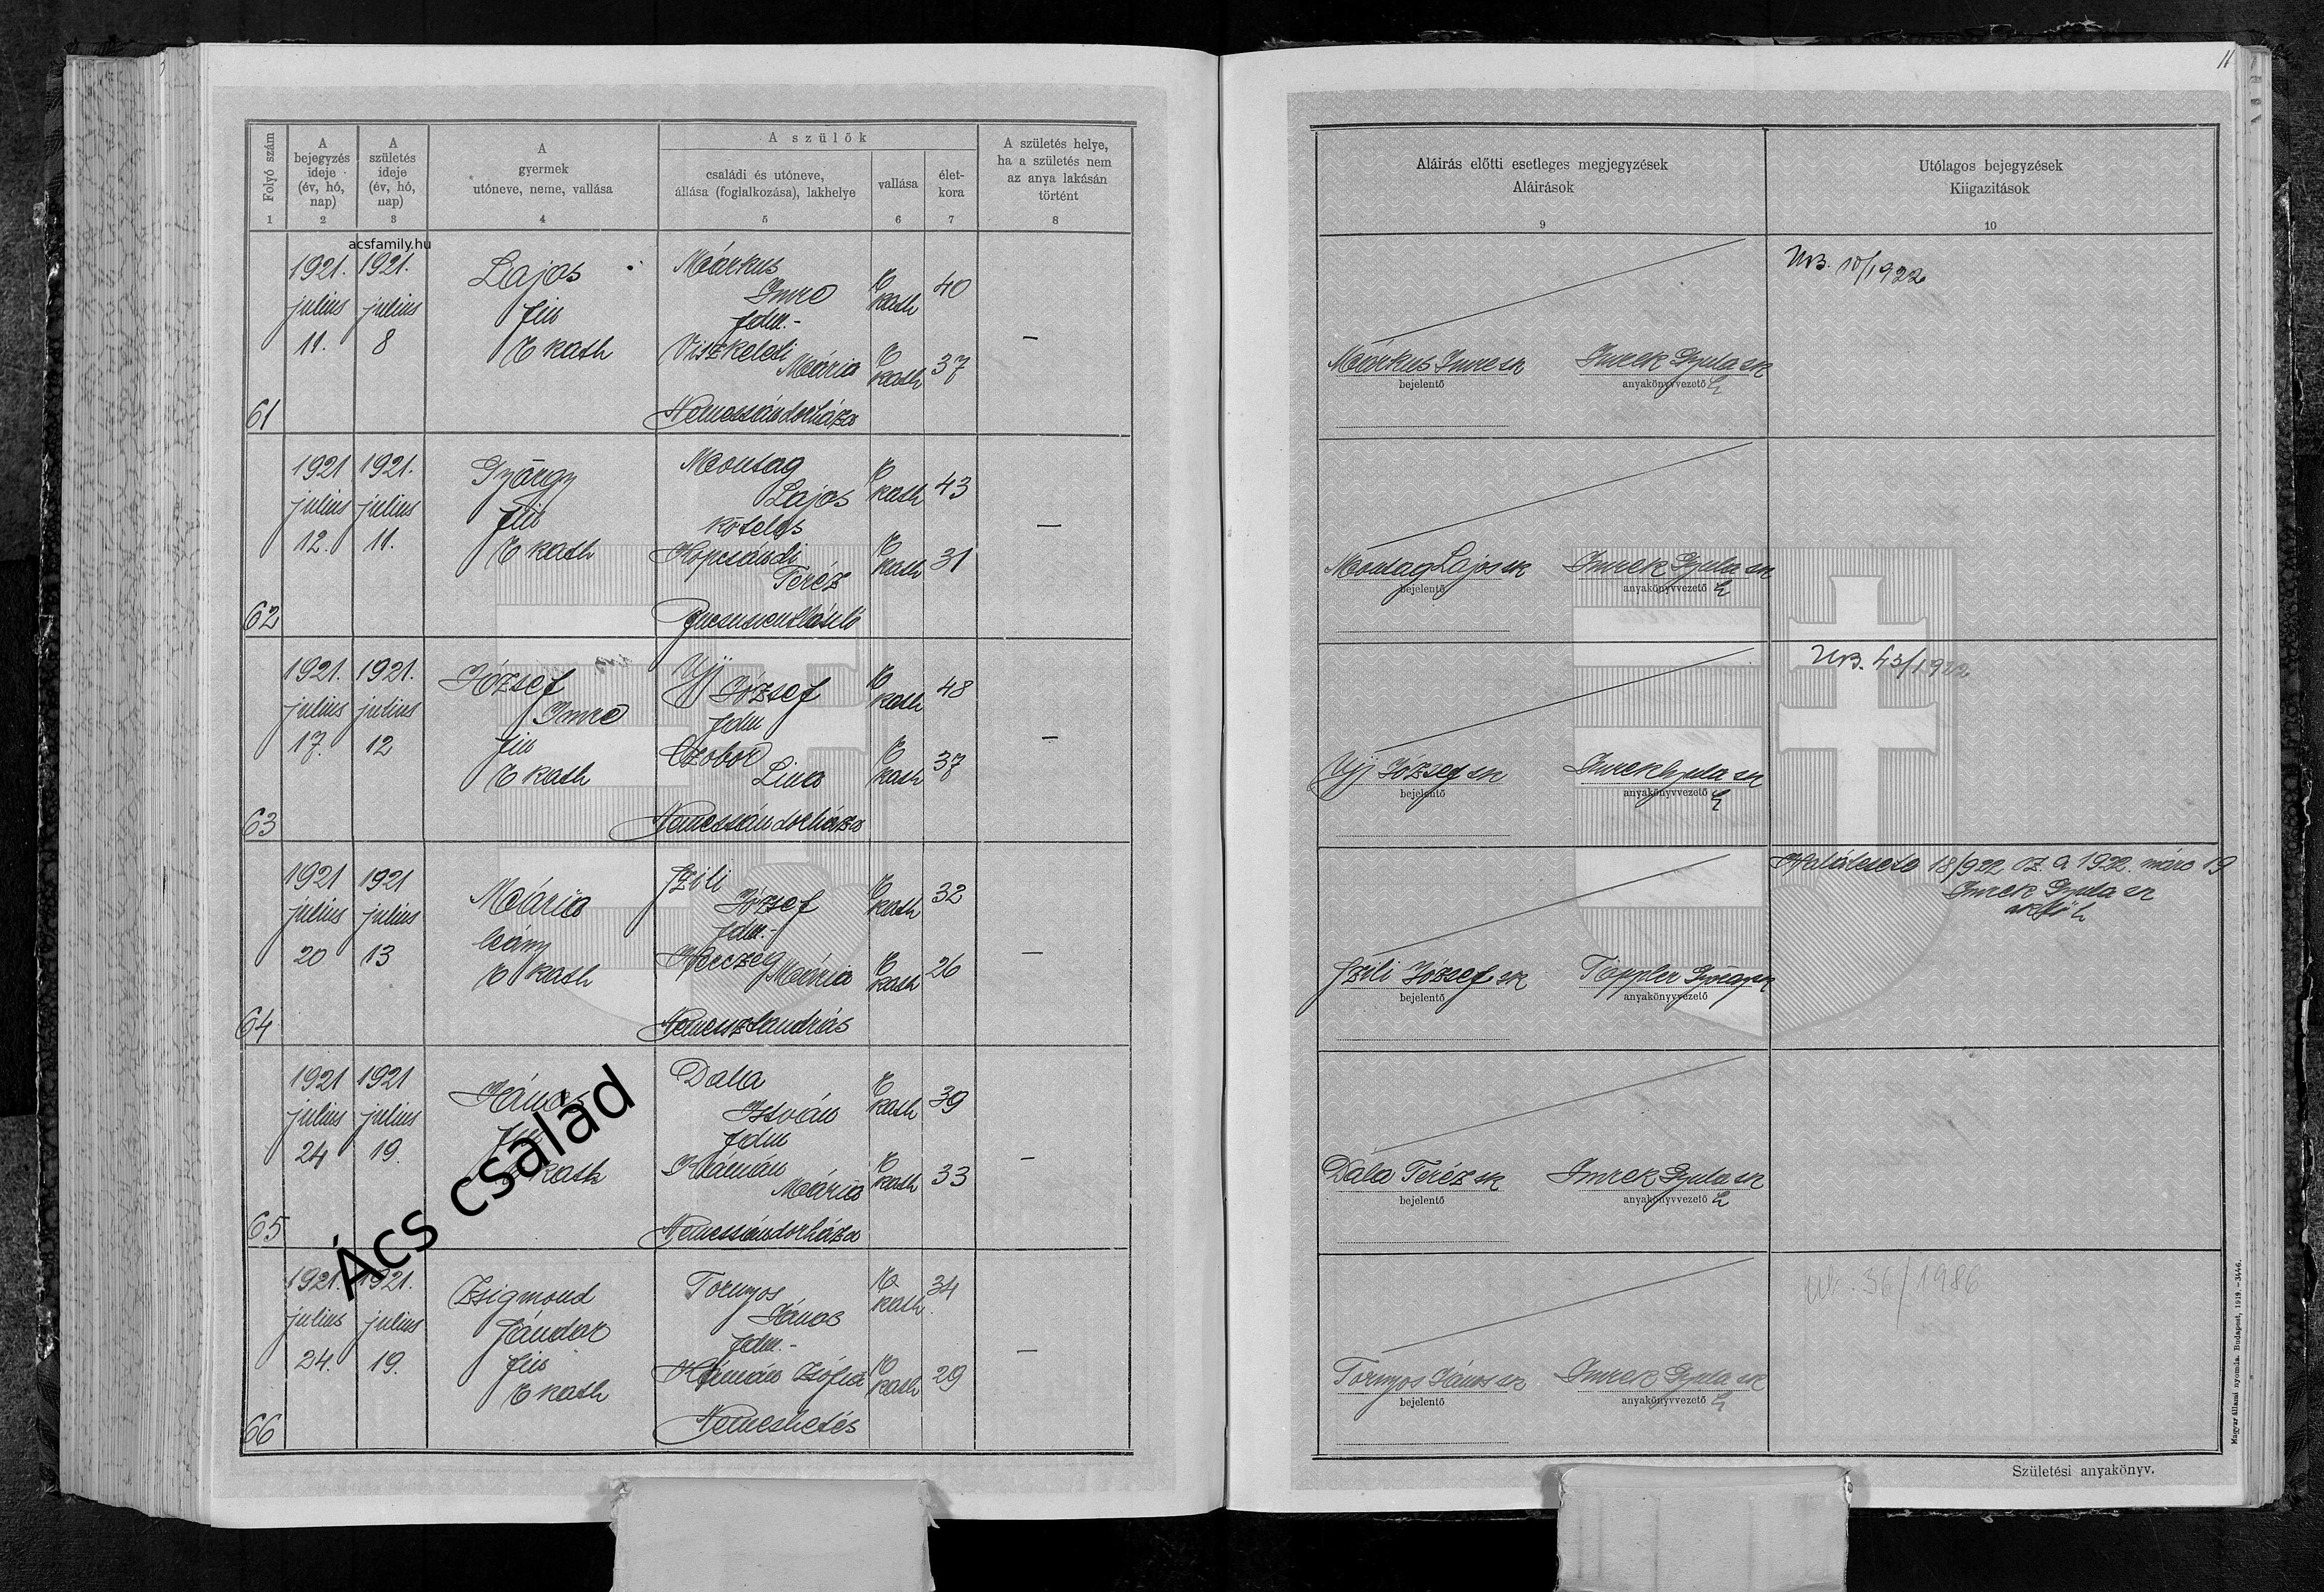 11
Folyó szám
1
A
bejegyzés
ideje
(év, hó,
nap)
2
A
születés
ideje
(év, hó,
nap)
3
A
gyermek
utóneve, neme, vallása
4
A szülők
családi és utóneve,
állása (foglalkozása), lakhelye
5
vallása
6
élet-
kora
7
A születés helye,
ha a születés nem
az anya lakásán
történt
8
Aláírás előtti esetleges megjegyzések
Aláírások
9
Utólagos bejegyzések
Kiigazítások
10
acsfamily.hu
61
1921.
julius
11.
1921.
julius
8
Lajos
fiu
r kath
Márkus
Imre
fdm.-
Viszkeleti
Mária
Nemessándorháza
r kath
40
r kath
37
—
Márkus Imre sk
bejelentő
Imrek Gyula sk
anyakönyvvezető h
10/1922
62
1921
julius
12.
1921.
julius
11.
György
fiu
r kath
Montag
Lajos
köteles
Kopcsándi
Teréz
r kath
43
r kath
31
—
Montag Lajos sk
bejelentő
Imrek Gyula sk
anyakönyvvezető h
63
1921.
julius
17.
1921.
julius
12
József
Imre
fiu
r kath
Ujj
József
fdm
Czobor
Lina
Nemessándorháza
r kath
48
r kath
37
—
Ujj József sk
bejelentő
Imrek Gyula sk
anyakönyvvezető h
43/1922
64
1921
julius
20
1921
julius
13
Mária
leány
r kath
Szili
József
fdm.-
Herczeg
Mária
Nemesszentandrás
r kath
32
r kath
26
—
Szili József sk
bejelentő
Toppler György sk
anyakönyvvezető
Halálesete 18/922 az. a. 1922. márc 19
Imrek Gyula sk
65
1921
julius
24
1921
julius
19.
János
fiu
r kath
Dala
István
fdm
Kálmán
Mária
Nemessándorháza
r kath
39
r kath
33
—
Dala Teréz sk
bejelentő
Imrek Gyula sk
anyakönyvvezető h
Ács család
66
1921.
julius
24.
1921.
julius
19.
Zsigmond
Sándor
fiu
r kath
Tornyos
János
fdm.-
Kálmán Zsófia
Nemeshetés
r kath
34
r kath
29
—
Tornyos János sk
bejelentő
Imrek Gyula sk
anyakönyvvezető h
36/1986
Magyar állami nyomda. Budapest, 1919. -3446.
Születési anyakönyv.